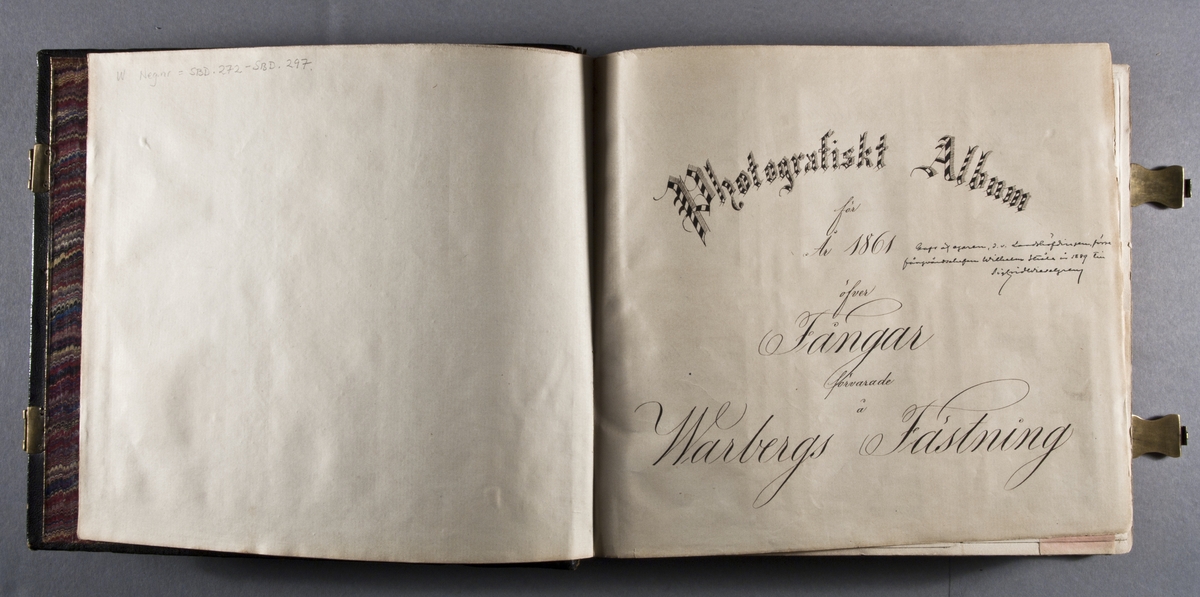 W Neg.nr = SBD. 272 - SBD. 297.
Photografiskt Album
för
År 1861
af d. v. Landshöfdingen
Wilhelm i 1889
öfver
Fångar
förvarade
å
Warbergs Fästning